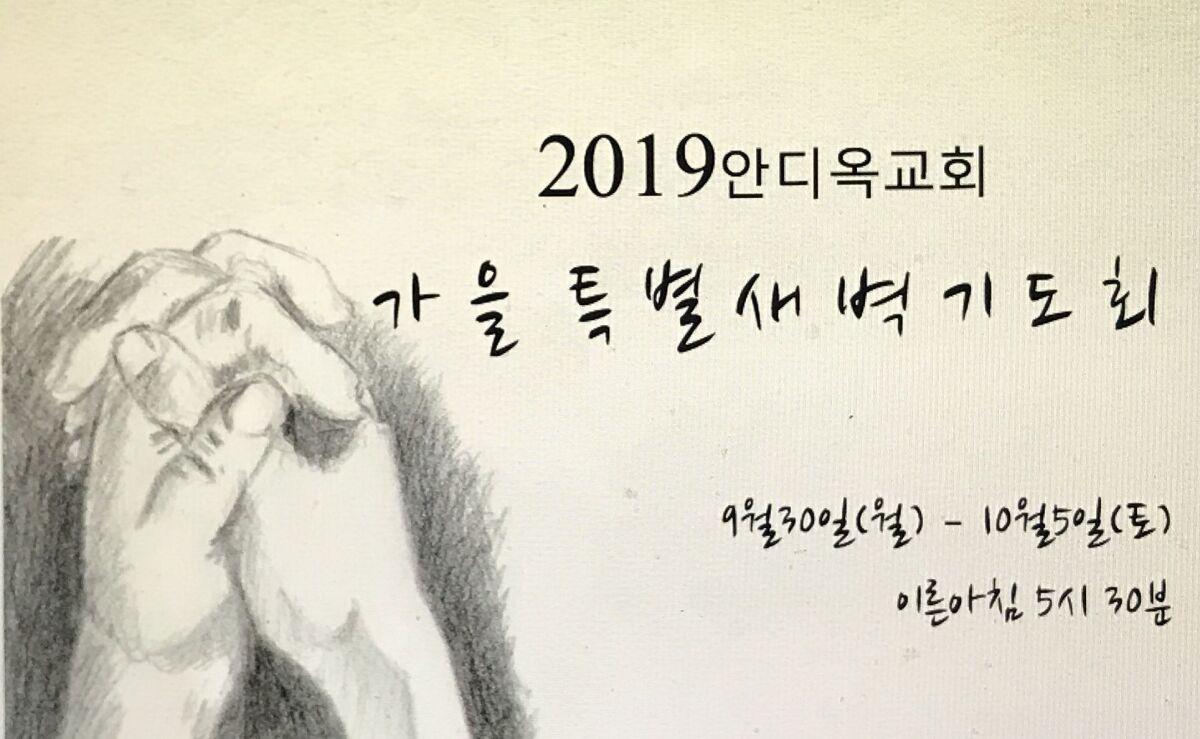 2019안디옥교회
가을 특별새벽기도회
9월30일(월) - 10월5일(토)
이른아침 5시 30분